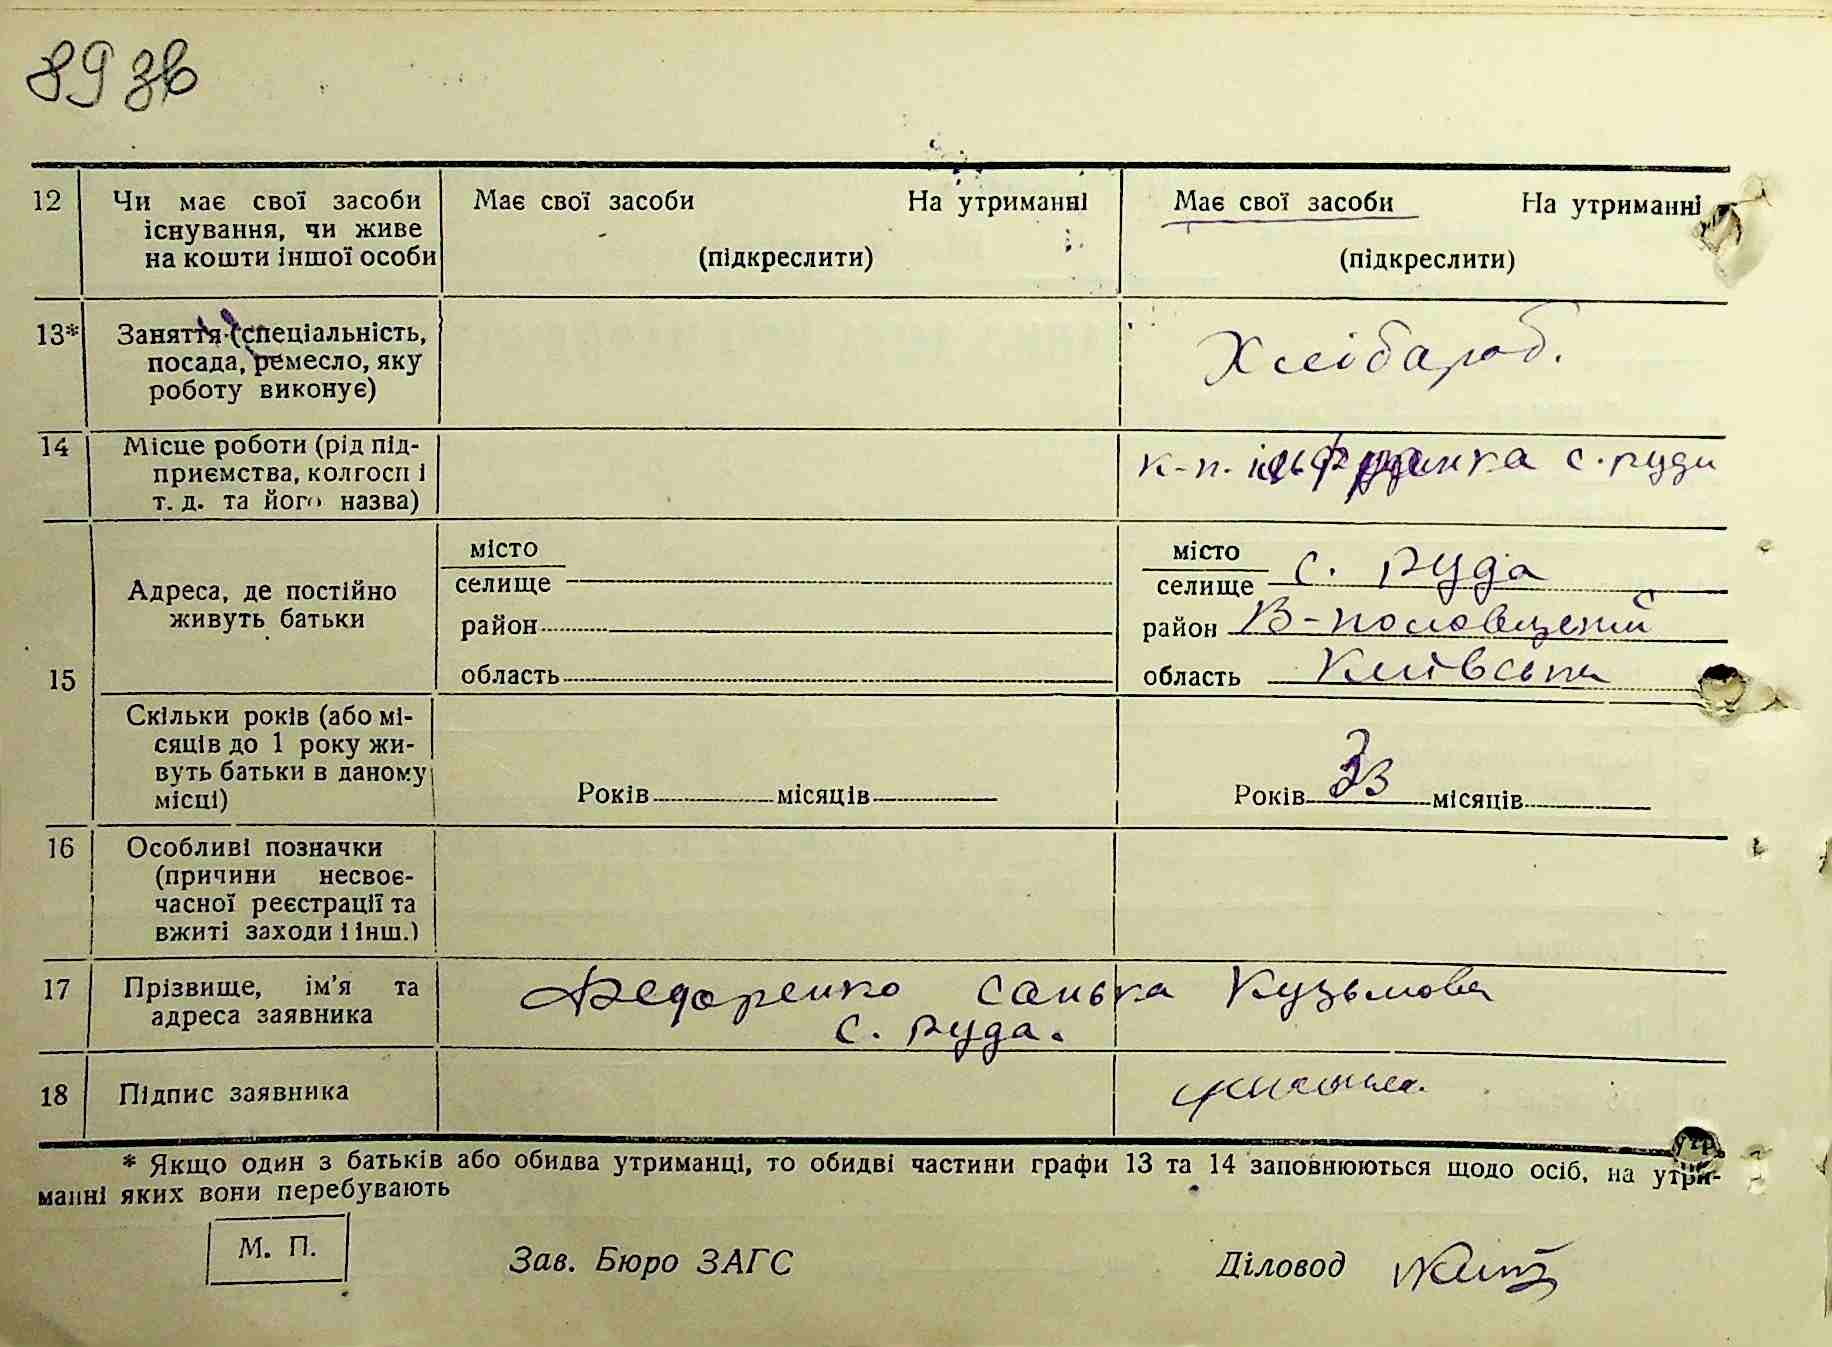 89 зв
12 Чи має свої засоби Має свої засоби На утриманні Має свої засоби На утриманні
існування, чи живе
на кошти іншої особи (підкреслити) (підкреслити)
13* Заняття (спеціальність,
посада, ремесло, яку Хлібароб.
роботу виконує)
14 Місце роботи (рід під-
приємства, колгосп і к-п. с. руди
т. д. та його назва)
місто місто
селище селище с. Руда
Адреса, де постійно
живуть батьки район район В-половецький
15 область область Київська
Скільки років (або мі-
сяців до 1 року жи-
вуть батьки в даному
місці) Років місяців Років 33 місяців
16 Особливі позначки
(причини несвоє-
часної реєстрації та
вжиті заходи і інш.)
17 Прізвище, ім'я та Федоренко Санька Кузьмова
адреса заявника с. Руда.
18 Підпис заявника
* Якщо один з батьків або обидва утриманці, то обидві частини графи 13 та 14 заповнюються щодо осіб, на утри-
манні яких вони перебувають
М. П. Зав. Бюро ЗАГС Діловод